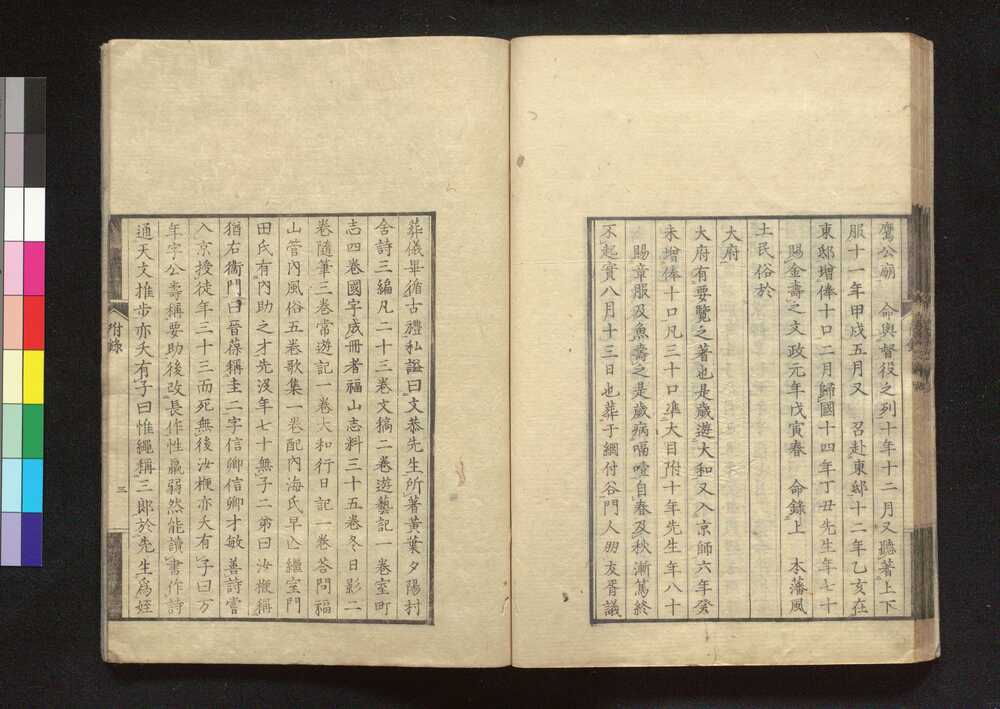 鷹公廟　命與督役之列十年十二月又聽著上下
服十一年甲戌五月又　召赴東邸十二年乙亥在
東邸增俸十口二月歸國十四年丁丑先生年七十
賜金壽之文政元年戊寅春　命錄上　本藩風
土民俗於
大府
大府有要覽之著也是歲遊大和又入京師六年癸
未增俸十口凡三十口準大目附十年先生年八十
賜章服及魚壽之是歲病嗝噎自春及秋漸篤終
不起實八月十三日也葬于網付谷門人朋友胥議
葬儀畢循古禮私諡曰文恭先生所著黃葉夕陽村
舍詩三編凡二十三卷文稿二卷遊藝記一卷室町
志四卷國字成冊者福山志料三十五卷冬日影二
卷隨筆三卷常遊記一卷大和行日記一卷答問福
山管內風俗五卷歌集一卷配內海氏早亡繼室門
田氏有內助之才先沒年七十無子二弟曰汝楩稱
猶右衞門曰晉葆稱圭二字信卿信卿才敏善詩嘗
入京授徒年三十三而死無後汝楩亦夭有子曰万
年字公壽稱要助後改長作性羸弱然能讀書作詩
通天文推步亦夭有子曰惟繩稱三郎於先生爲姪
附錄
三